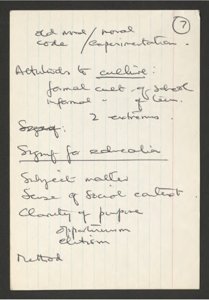 7
old moral / moral
code / experimentation.
Attitudes to culture:
formal cult. of school
informal - of teen.
2 extremes.
for education
Subject matter
Sense of social context.
Clarity of purpose
opportunism
elitism
Method